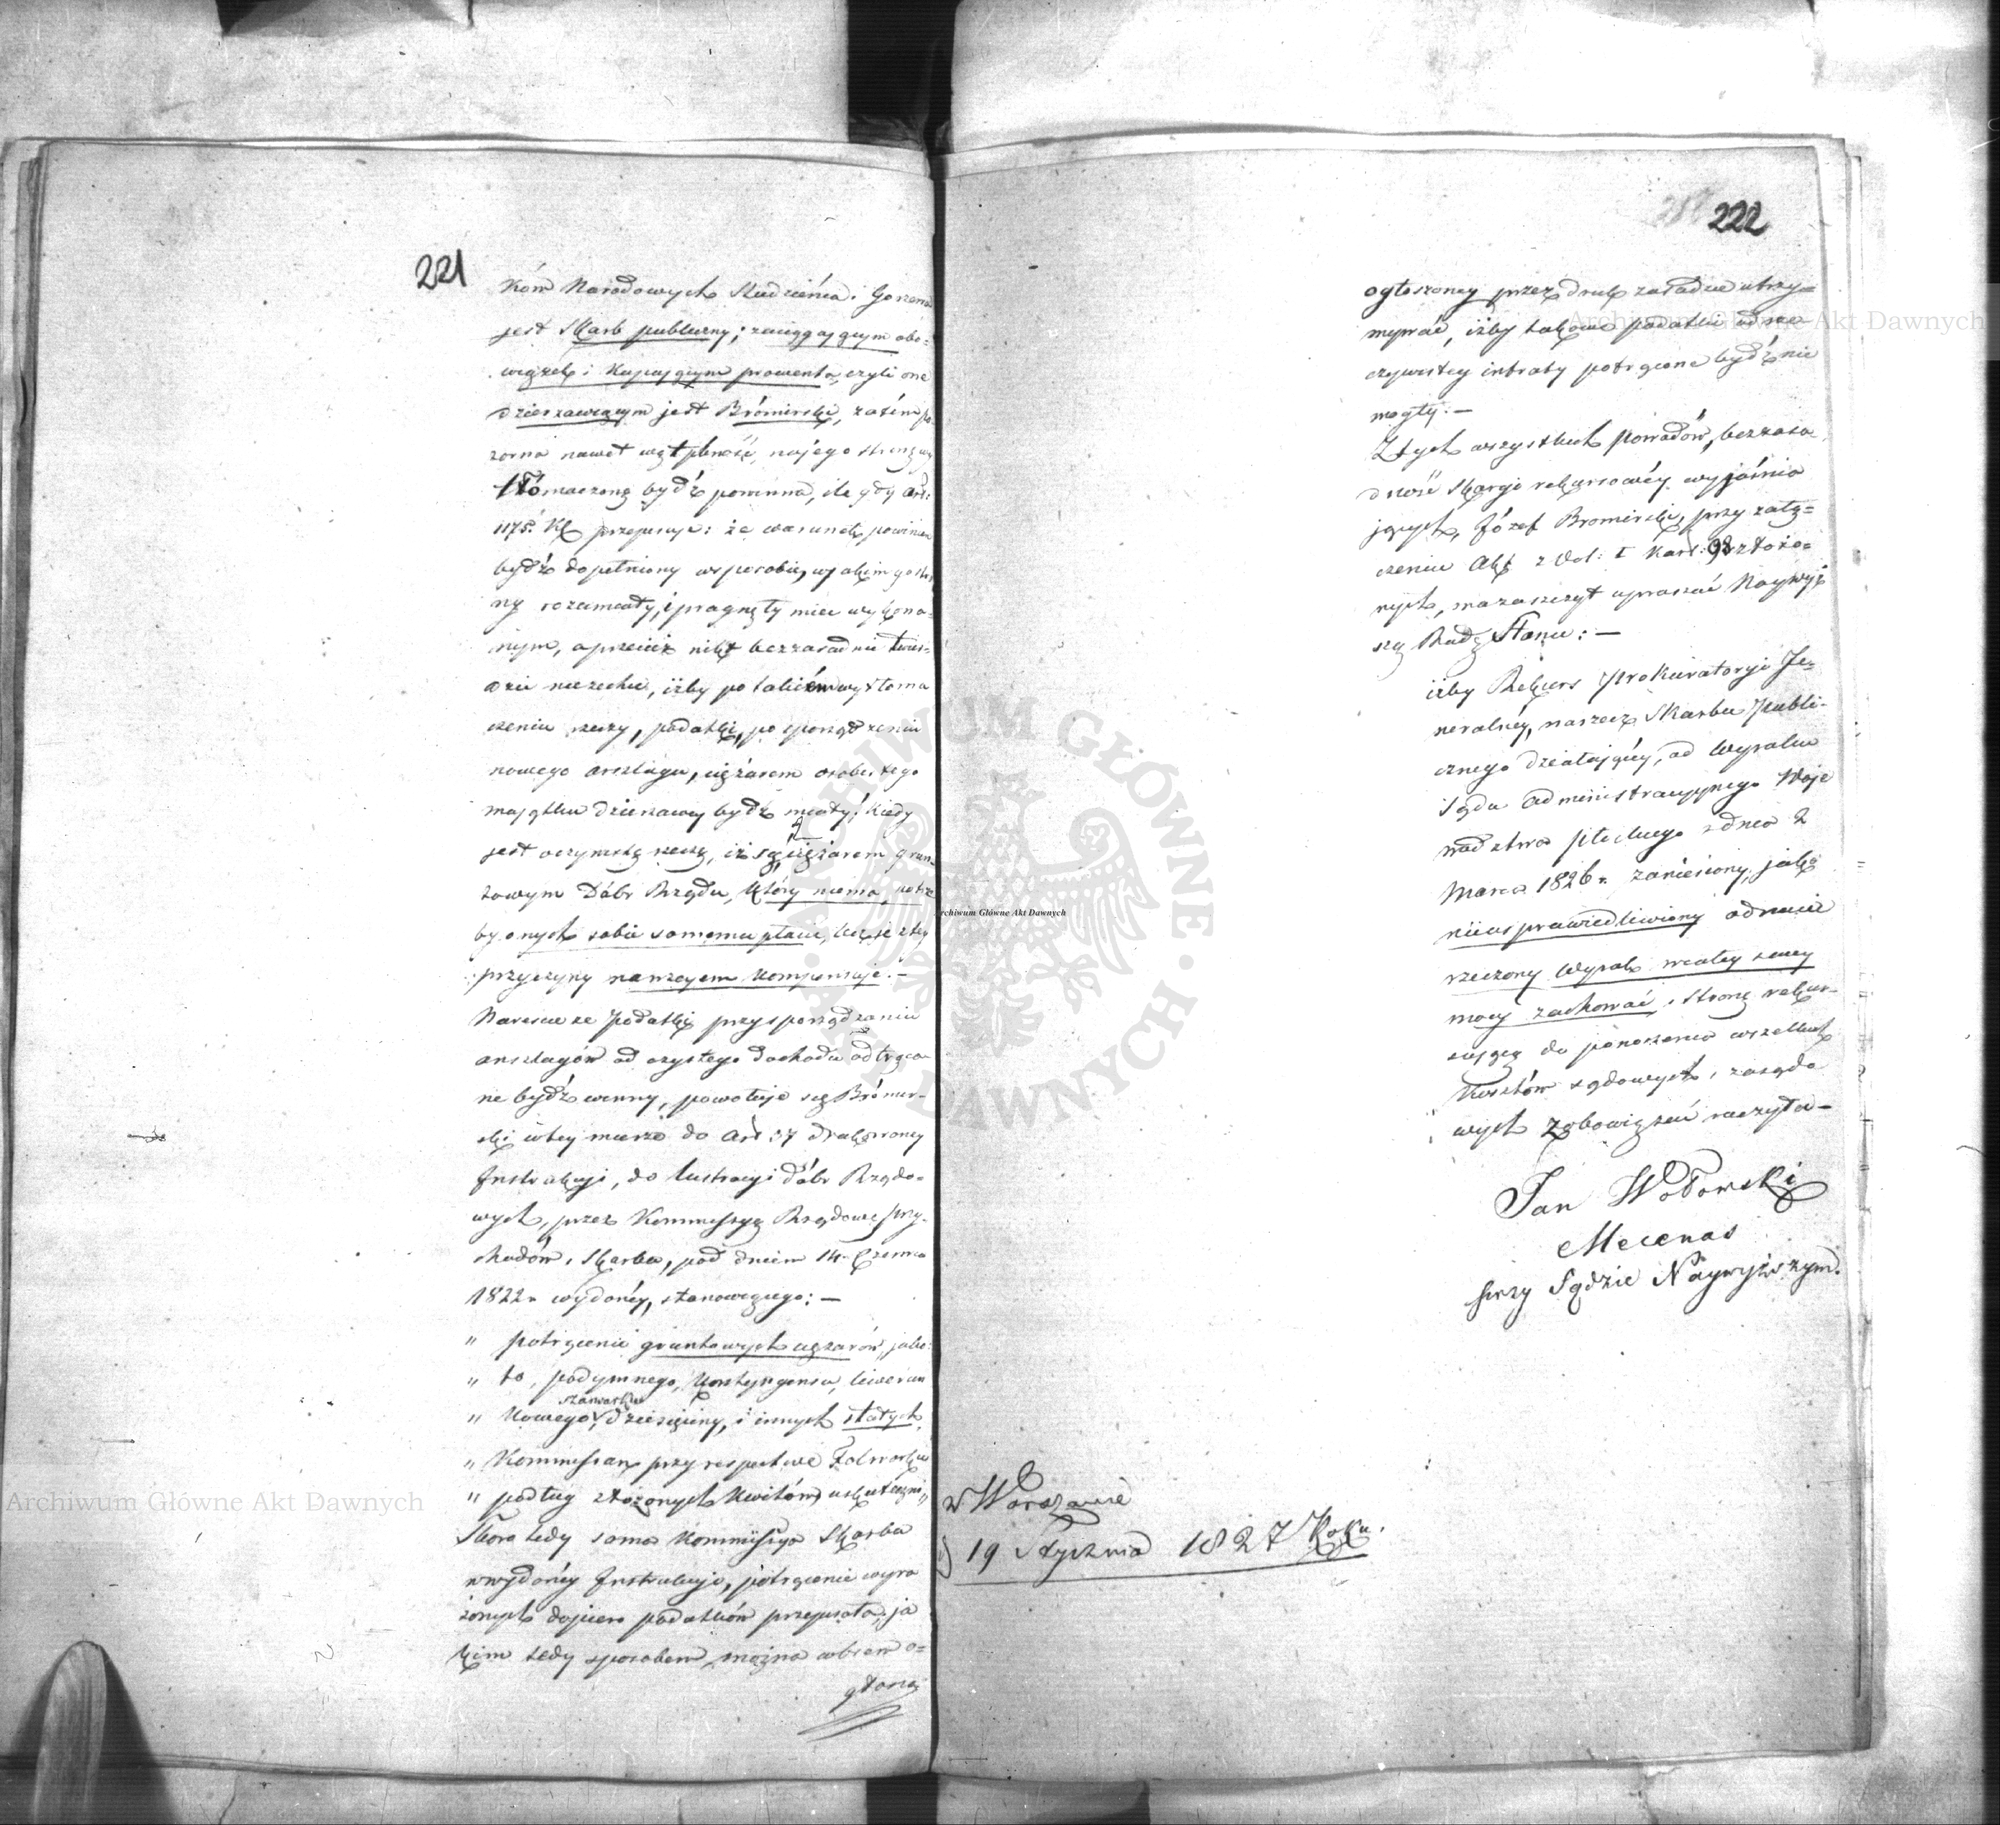 221
ków Narodowych Studzieńca i Gorzena
jest Skarb publiczny; zaciągającym obo=
wiązek i kupującym prowenta, czyli one
dzierzawiącym jest Brómirski, zatém po=
zorna nawet wątpliwość, na jego stronę
tłómaczoną bydź powinna, ile gdy Art:
1175. KC przepisuje: że warunek powinien
bydź dopełniony w sposobie, w jakim go stro
ny rozumiały, i pragnęły mieć wykona=
nym, a przecież nikt bezzasadnie twier=
dzić niezechce, iżby po takiém wytłoma
czeniu rzeczy, podatki, po sporządzeniu
nowego anszlagu, ciężarem osobistego
majątku dzierzawcy bydź miały; kiedy
jest oczywistą rzeczą, iż są ciężarem grun=
towym Dóbr Rządu, który niema potrze
by onych sobie samemu płacić, lecz je z tey
przyczyny nawzajem kompensuje. —
Nareszcie że podatki przy sporządzaniu
anszlagów od czystego dochodu odtrąco
ne bydź winny, powołuje się Brómir=
ski w tey mierze do Art 37 drukowaney
Instrukcyi, do lustracyi dóbr Rządo=
wych, przez Kommissyą Rządową Przy=
chodów i Skarbu, pod dniem 14. Czerwca
1822 r. wydanéy, stanowiącego: —
„ potrącenie gruntowych ciężarów, jako=
„ to, podymnego, kontyngensu, liwerun
szarwarku
„ kowego, dziesięciny, i innych stałych,
„ Kommissarz przy respective Folwarku
„ podług złożonych kwitów uskuteczni„
Skoro tedy sama Kommissya Skarbu
w wydanéy Instrukcyi, potrącenie wyra
żonych dopiero podatków przepisała, ja
kim tedy sposobem można wbrew o=
głoszo
222
ogłoszoney przez druk zasadzie utrzy=
mywać, iżby takowe podatki od rze=
czywistey intraty potrącone bydź nie
mogły. —
Z tych wszystkich powodów, bezzasa
dność skargi rekursowéy wyjaśnia
jących, Józef Bromirski, przy załą=
czeniu Akt z Vol: I kart: 98 złożo=
nych, ma zaszczyt upraszać Naywyż
szą Radę Stanu: —
iżby Rekurs Prokuratoryi Je=
neralnéy, na rzecz Skarbu Publi=
cznego działającéy, od Wyroku
Sądu Administracyjnego Woje
wództwa Płockiego z dnia 2
Marca 1826 r. zaniesiony, jako
nieusprawiedliwiony odrzucić
rzeczony Wyrok w całey swey
mocy zachować, i stronę rekur=
sującą do ponoszenia wszelkich
kosztów sądowych, i zasądo
wych zobowiązać raczyła —
Jan Wołowski
Mecenas
przy Sądzie Naywyższym.
w Warszawie
d) 19 Stycznia 1827 Roku.